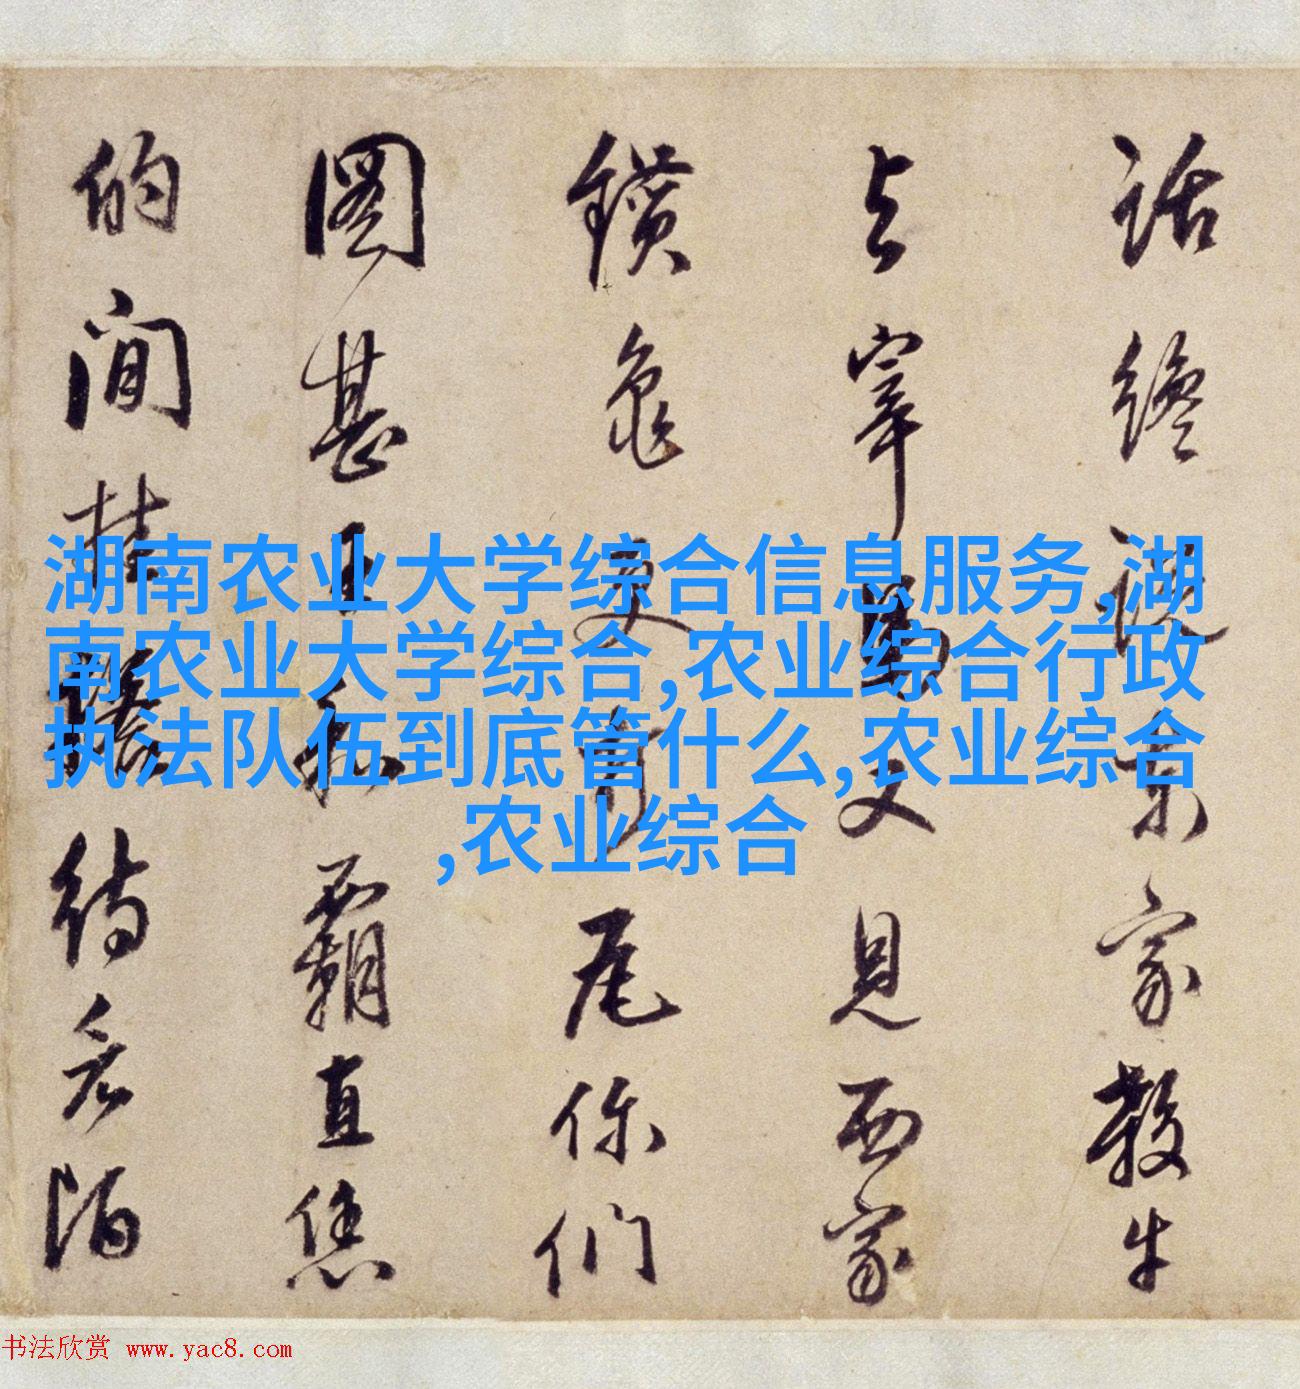 话终说东家教牛
与宰马又见西家
鑚龟更打尾你们
图甚王和霸直恁
的闲
挂
待
泊
湖南农业大学综合信息服务,湖
南农业大学综合,农业综合行政
执法队伍到底管什么,农业综合
,农业综合
书法欣赏 www.yac8.com